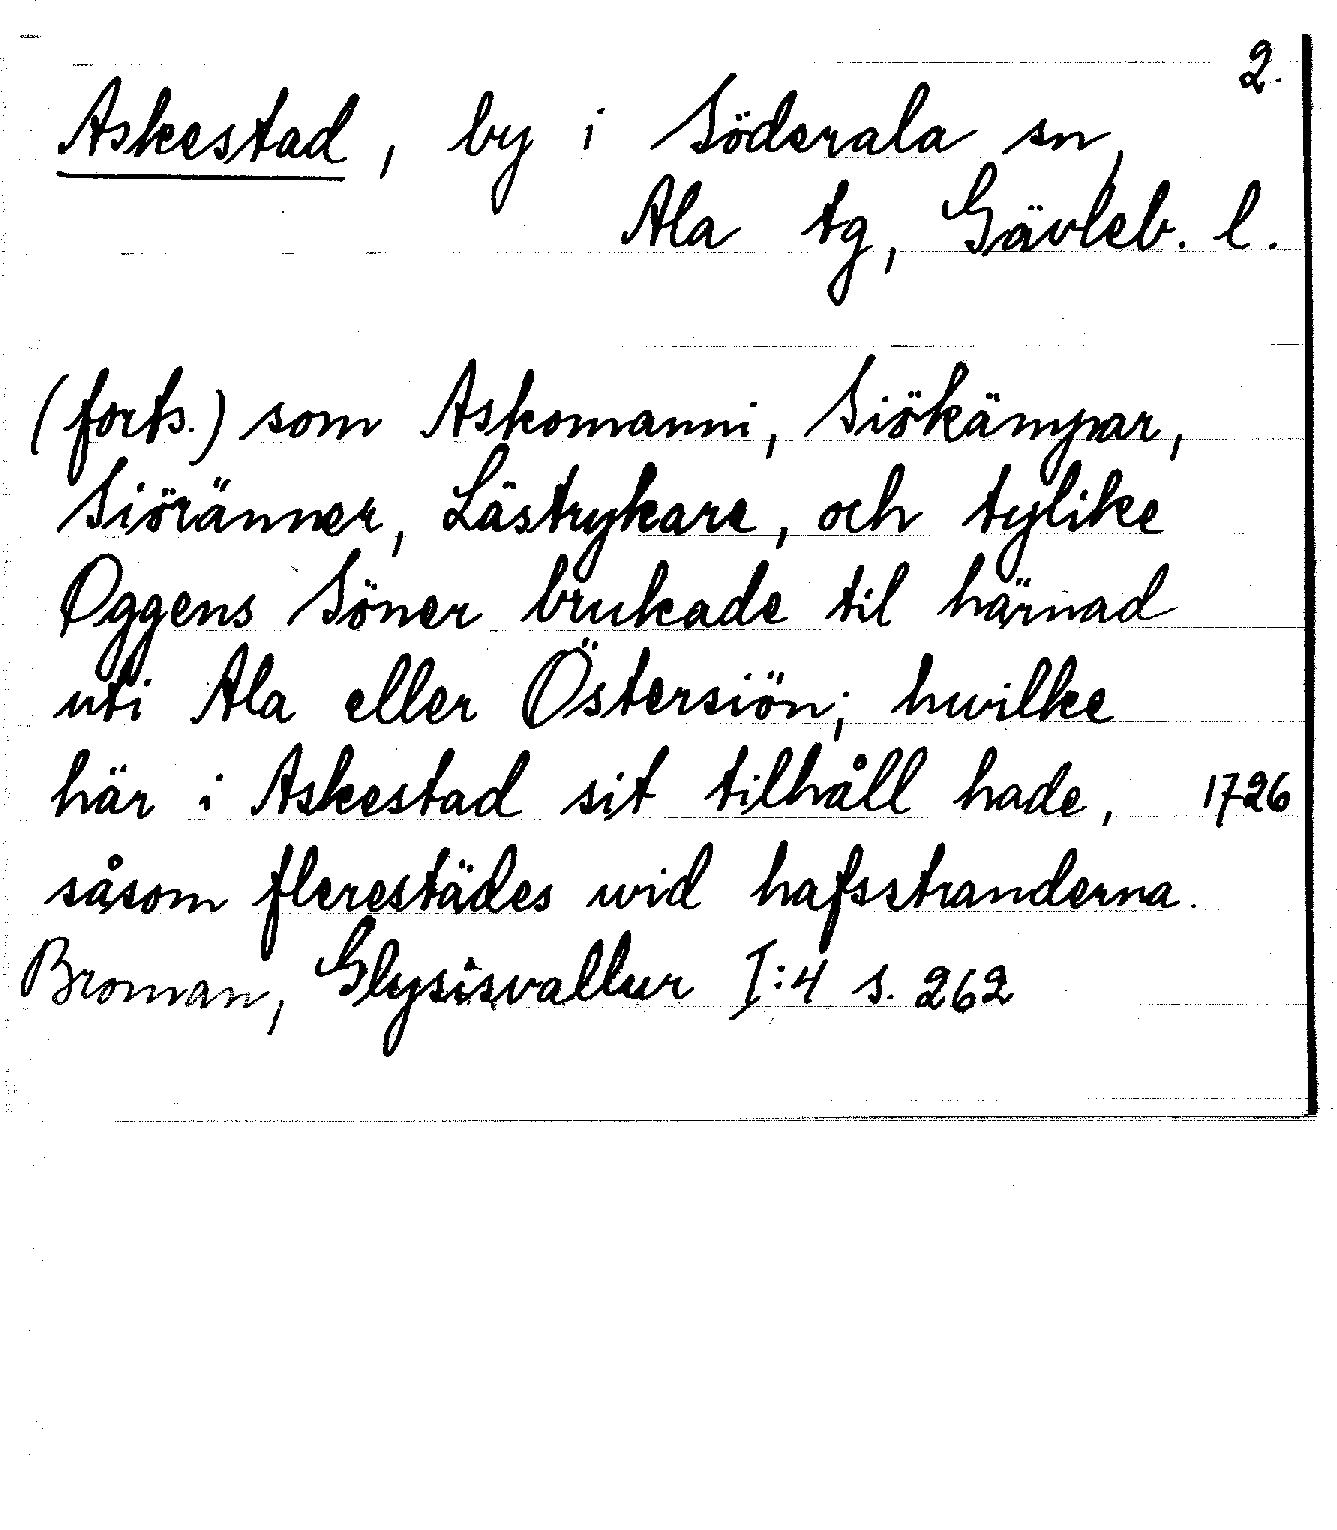 2.
Askestad, by i Söderala sn,
Ala tg, Gävleb. l.
(forts.) som Askomanni, Siökämpar,
Siöränner, Lästrykare, och tylike
Oggens Söner brukade til härnad
uti Ala eller Östersiön; hwilke
här i Askestad sit tilhåll hade, 1726
såsom flerestädes wid hafsstranderna.
Broman, Glysisvallur I:4 s. 262